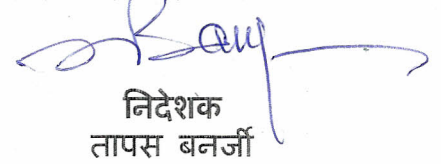 निदेशक
तापस बनर्जी